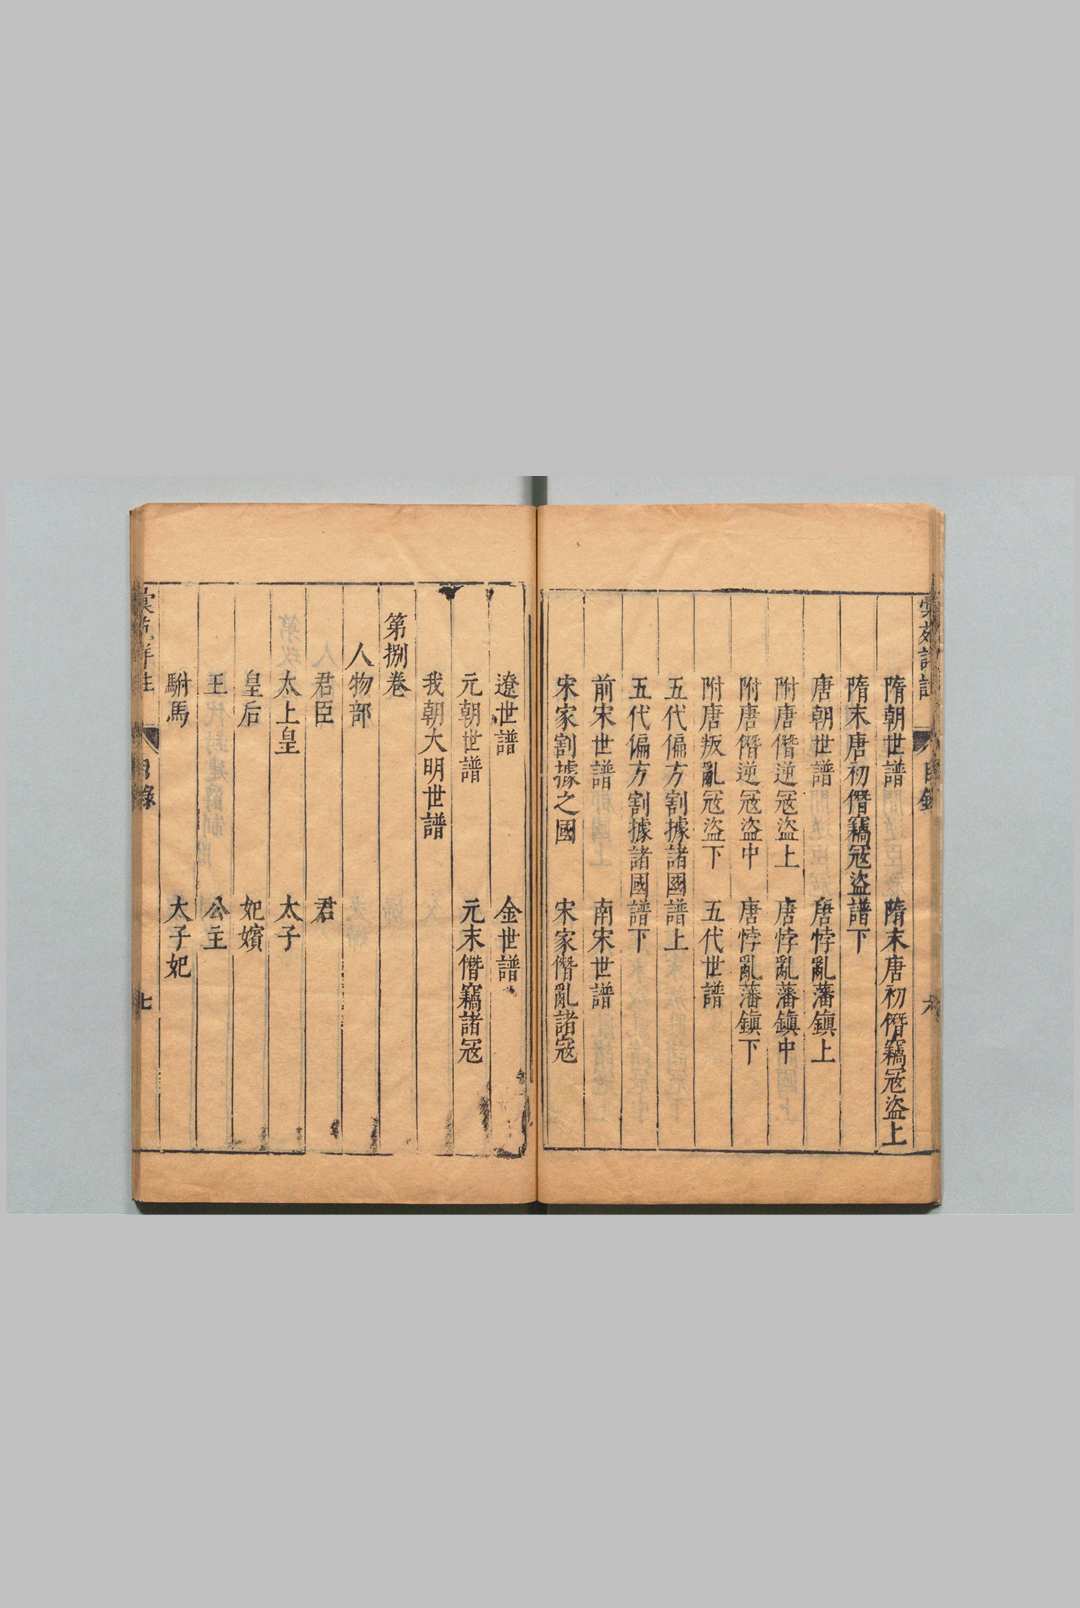 隋朝世譜 隋末唐初僭竊冦盜上
隋末唐初僭竊冦盜譜下
唐朝世譜 唐悖亂藩鎮上
附唐僭逆冦盜上 唐悖亂藩鎮中
附唐僭逆冦盜中 唐悖亂藩鎮下
附唐叛亂冦盜下 五代世譜
五代偏方割據諸國譜上
五代偏方割據諸國譜下
前宋世譜 南宋世譜
宋家割據之國 宋家僭亂諸冦
遼世譜 金世譜
元朝世譜 元末僭竊諸冦
我朝大明世譜
第捌卷
人物部
君臣 君
太上皇 太子
皇后 妃嬪
王 公主
駙馬 太子妃
目錄
七